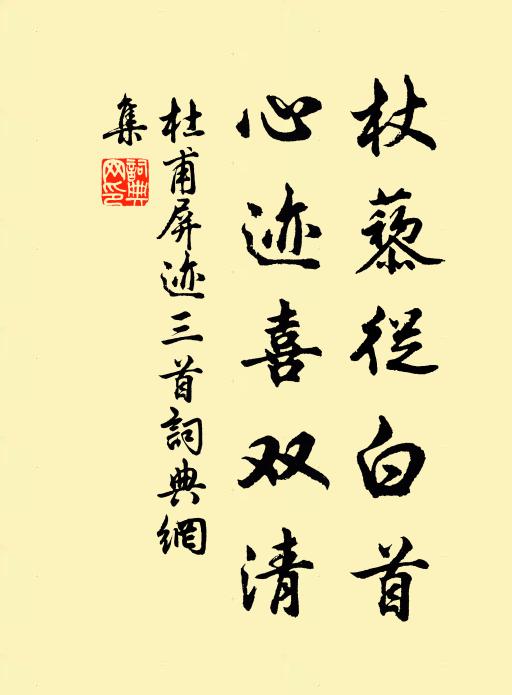 杖藜從白首
心迹喜双清
杜甫屏迹三首詞典網
集
詞典網印